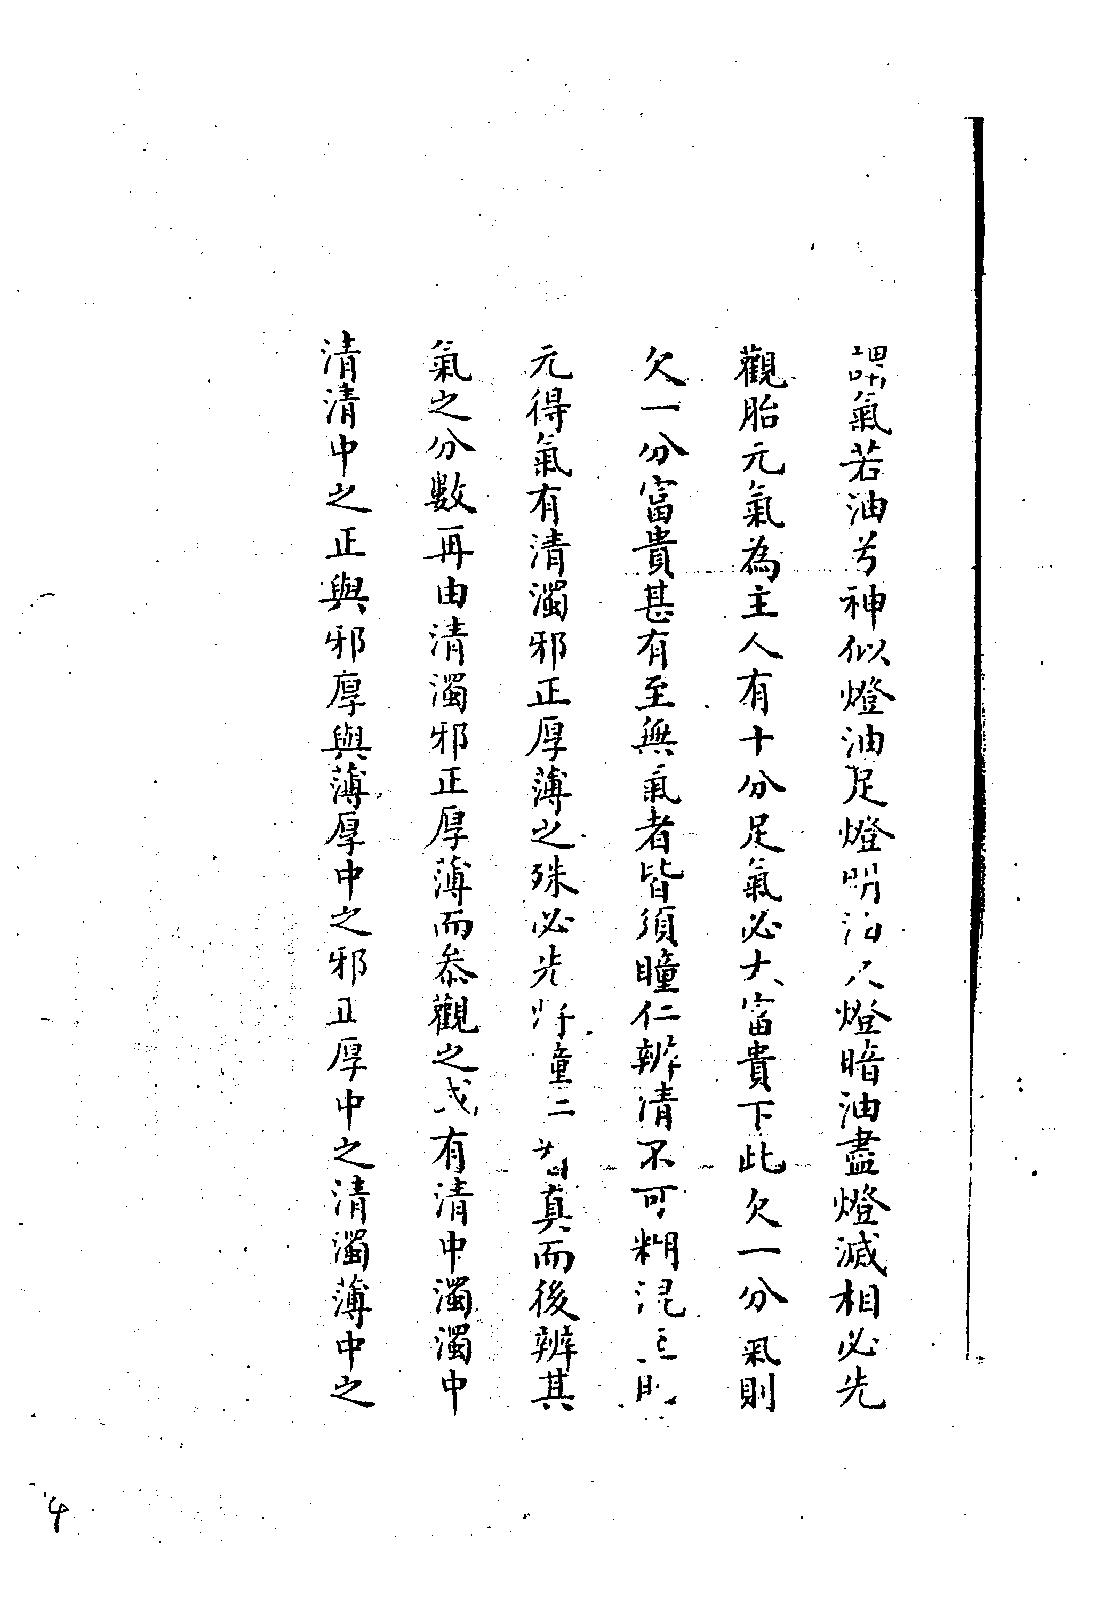 謂氣若油兮神似燈油足燈明油欠燈暗油盡燈滅相必先
觀胎元氣為主人有十分足氣必大富貴下此欠一分氣則
欠一分富貴甚有至無氣者皆須瞳仁辨清不可糊混
元得氣有清濁邪正厚薄之殊必先將瞳二真而後辦其
氣之分數再由清濁邪正厚薄而叅觀之或有清中濁濁中
清清中之正與邪厚與薄厚中之邪正厚中之清濁薄中之
4